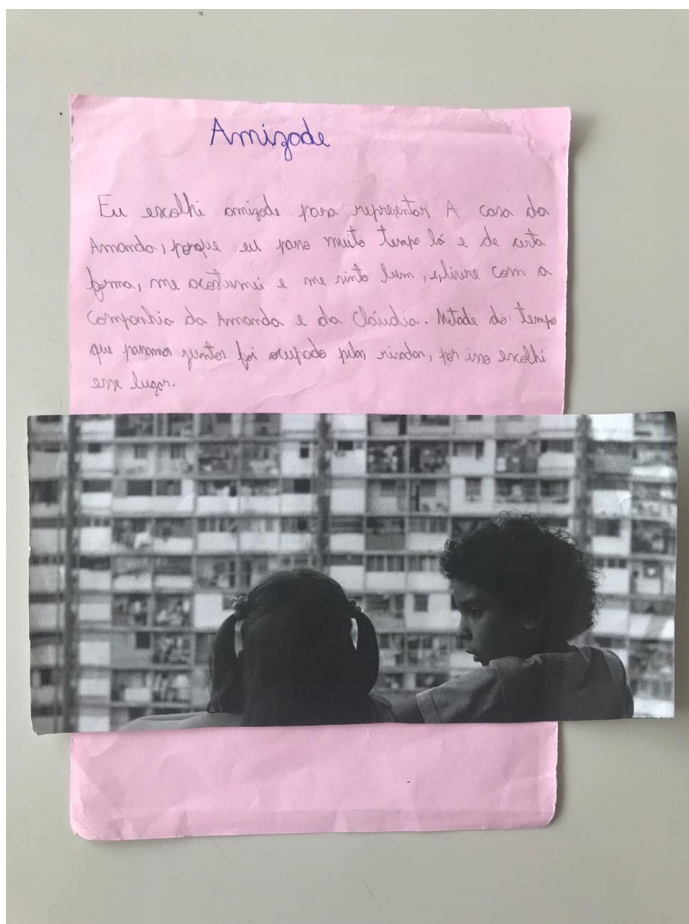 Amizade
Eu escolhi amizade para representar A casa da
Amanda, porque eu passo muito tempo lá e de certa
forma, me acostumei e me sinto bem, e, livre com a
companhia da Amanda e da Cláudia. Metade do tempo
que passamos juntos foi ocupado pelas risadas, por isso escolhi
esse lugar.